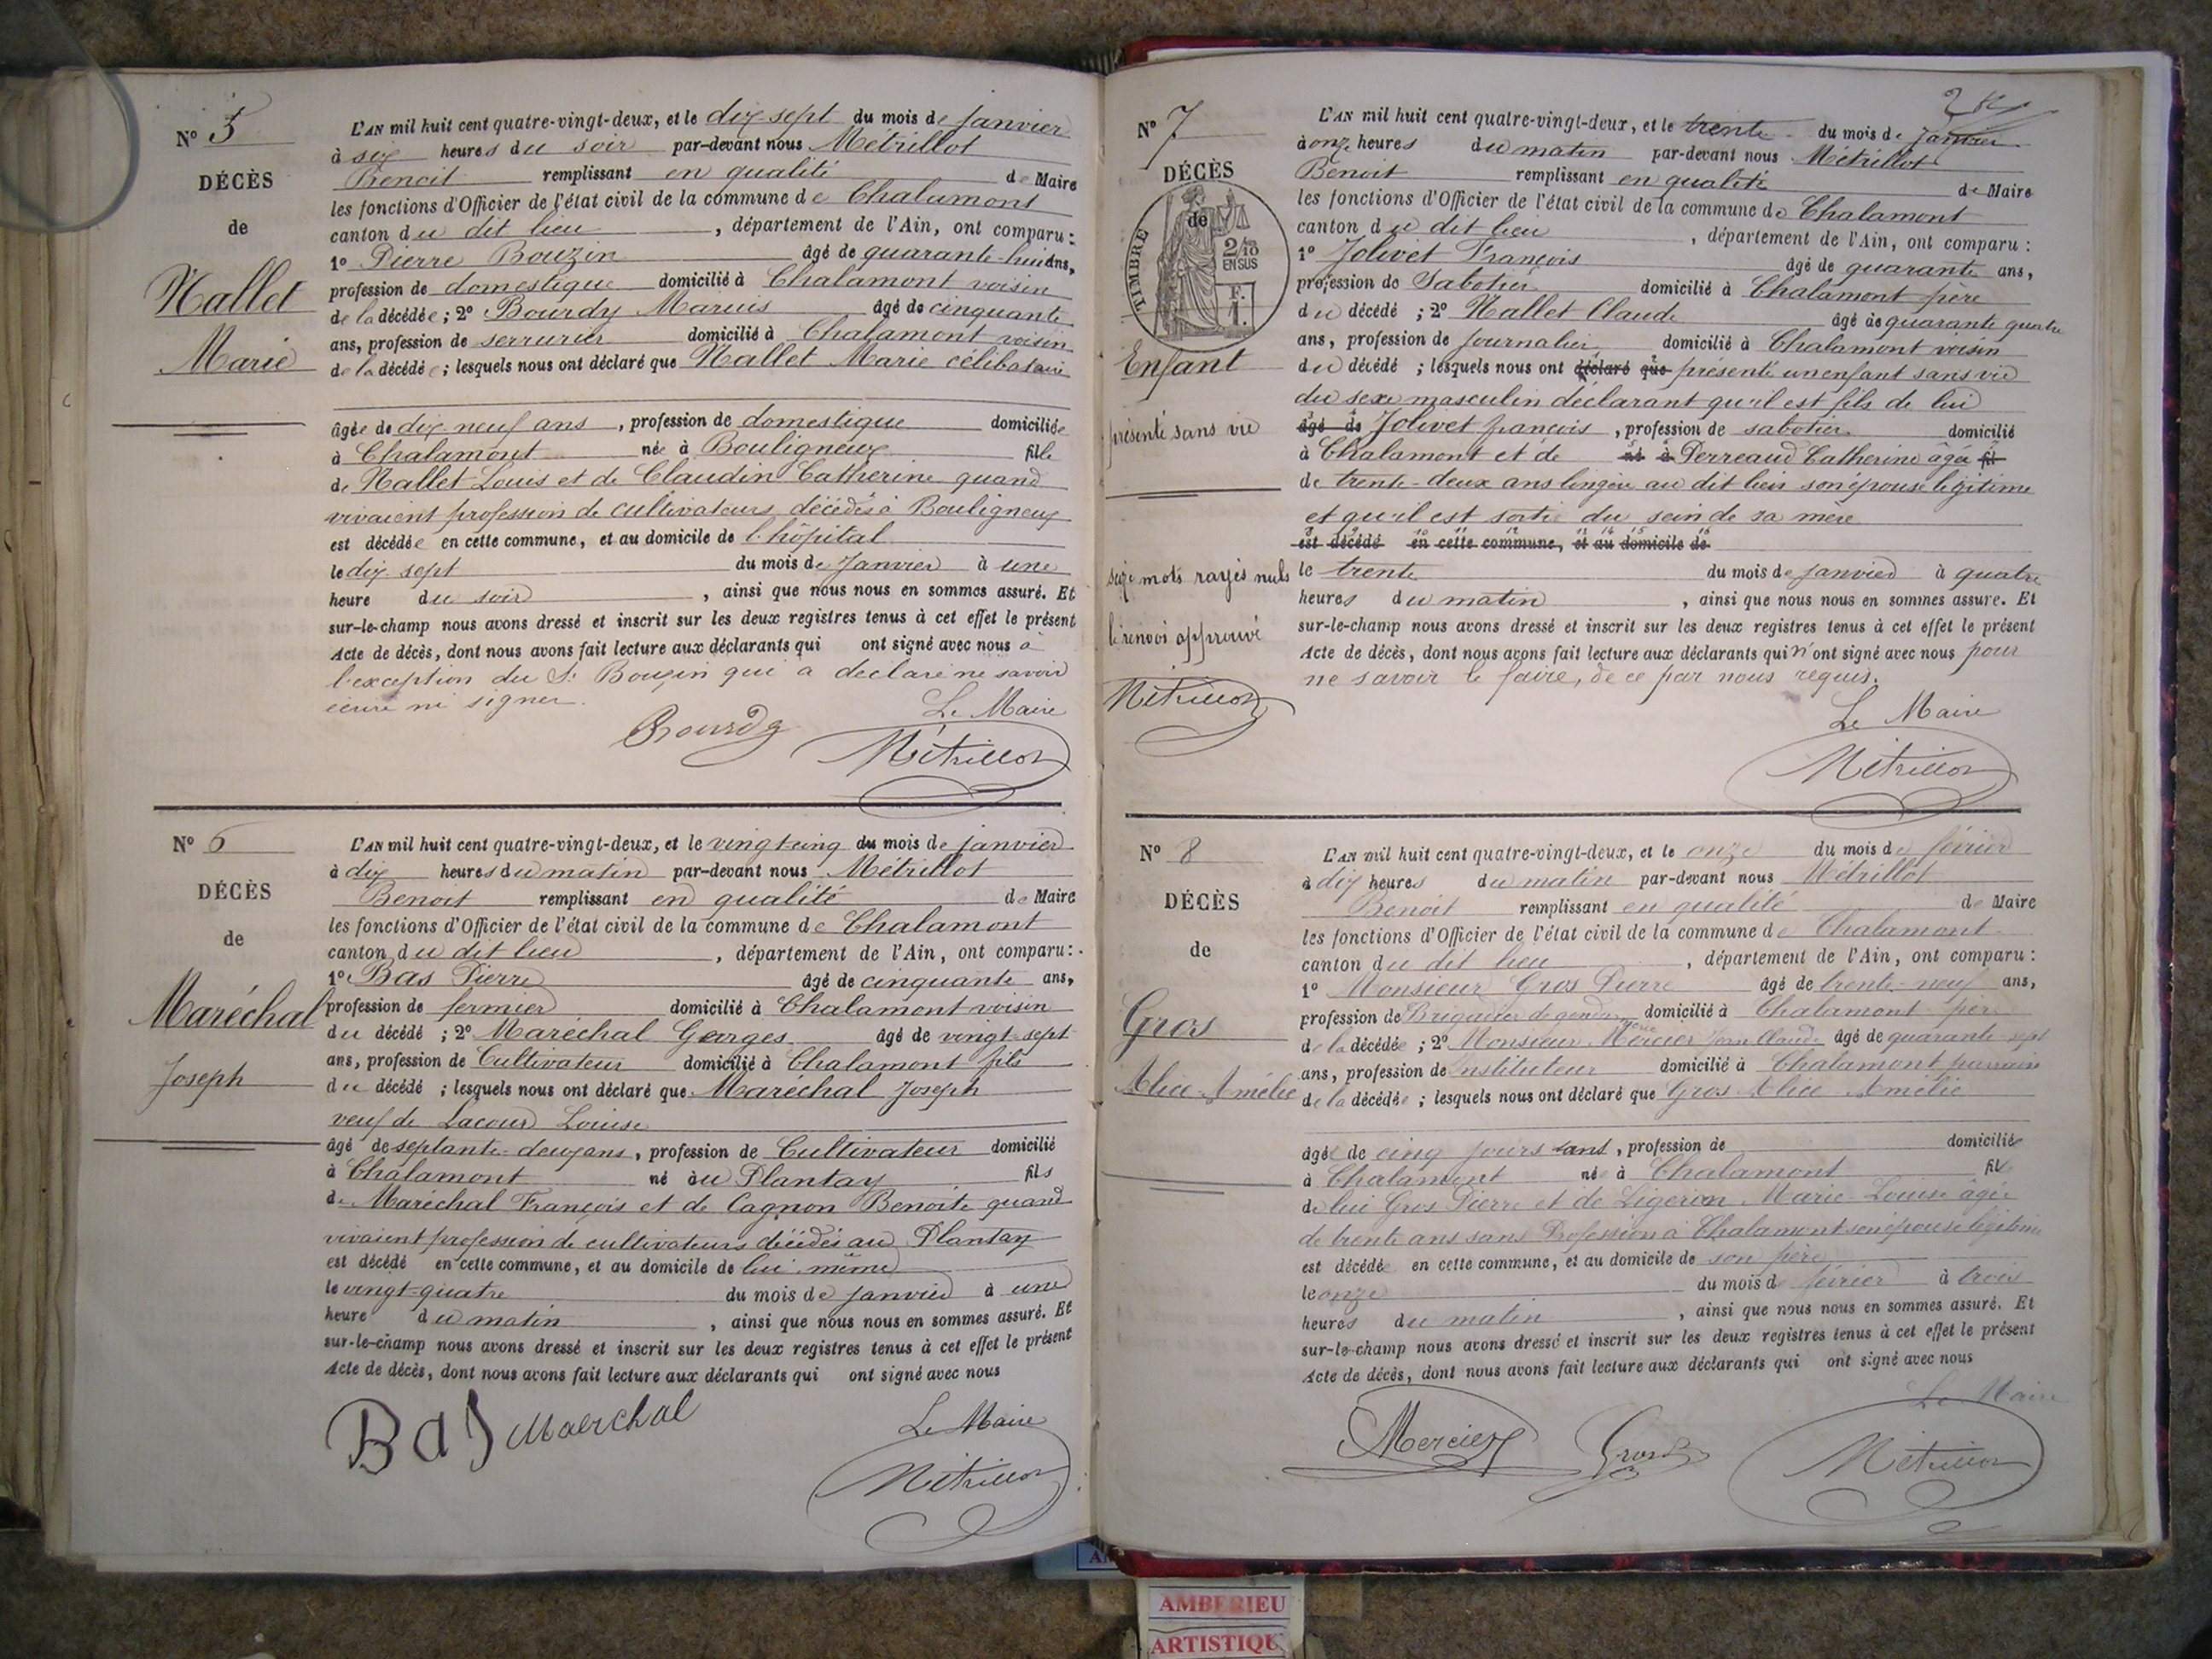 N° 5
DÉCÈS
de
Nallet
Marie
L'AN mil huit cent quatre-vingt-deux, et le dix sept du mois de janvier
à six heures du soir par-devant nous Métrillot
Benoit remplissant en qualité de Maire
les fonctions d'Officier de l'état civil de la commune de Chalamont
canton du dit lieu , département de l'Ain, ont comparu :
1° Pierre Bouzin âgé de quarante-huit ans,
profession de domestique domicilié à Chalamont voisin
de la décédée ; 2° Bourdy Marius âgé de cinquante
ans, profession de serrurier domicilié à Chalamont voisin
de la décédée ; lesquels nous ont déclaré que Nallet Marie célibataire
âgée de dix neuf ans , profession de domestique domiciliée
à Chalamont née à Bouligneux fille
de Nallet Louis et de Claudin Catherine quand
vivaient profession de cultivateurs décédés à Bouligneux
est décédée en cette commune, et au domicile de l'hôpital
le dix sept du mois de Janvier à une
heure du soir , ainsi que nous nous en sommes assuré. Et
sur-le-champ nous avons dressé et inscrit sur les deux registres tenus à cet effet le présent
Acte de décès, dont nous avons fait lecture aux déclarants qui ont signé avec nous à
l'exception du Sr Bouzin qui a déclaré ne savoir
écrire ni signer.
Le Maire
Bourdy
Métrillot
N° 6
DÉCÈS
de
Maréchal
Joseph
L'AN mil huit cent quatre-vingt-deux, et le vingt-cinq du mois de janvier
à dix heures du matin par-devant nous Métrillot
Benoit remplissant en qualité de Maire
les fonctions d'Officier de l'état civil de la commune de Chalamont
canton du dit lieu , département de l'Ain, ont comparu :
1° Bas Pierre âgé de cinquante ans,
profession de fermier domicilié à Chalamont voisin
du décédé ; 2° Maréchal Georges âgé de vingt-sept
ans, profession de Cultivateur domicilié à Chalamont fils
du décédé ; lesquels nous ont déclaré que Maréchal Joseph
veuf de Lacour Louise
âgé de septante-deux ans , profession de Cultivateur domicilié
à Chalamont né au Plantay fils
de Maréchal François et de Cagnon Benoite quand
vivaient profession de cultivateurs décédés au Plantay
est décédé en cette commune, et au domicile de lui même
le vingt-quatre du mois de janvier à une
heure du matin , ainsi que nous nous en sommes assuré. Et
sur-le-champ nous avons dressé et inscrit sur les deux registres tenus à cet effet le présent
Acte de décès, dont nous avons fait lecture aux déclarants qui ont signé avec nous
Le Maire
Bas Maerchal
Métrillot
N° 7
DÉCÈS
de
TIMBRE
2/10
EN SUS
F.
1.
Enfant
présenté sans vie
seize mots rayés nuls
le renvoi approuvé
Métrillot
L'AN mil huit cent quatre-vingt-deux, et le trente du mois de janvier
à onze heures du matin par-devant nous Métrillot
Benoit remplissant en qualité de Maire
les fonctions d'Officier de l'état civil de la commune de Chalamont
canton du dit lieu , département de l'Ain, ont comparu :
1° Jolivet François âgé de quarante ans,
profession de Sabotier domicilié à Chalamont père
du décédé ; 2° Nallet Claude âgé de quarante quatre
ans, profession de journalier domicilié à Chalamont voisin
du décédé ; lesquels nous ont déclaré que présenté un enfant sans vie
du sexe masculin déclarant qu'il est fils de lui
âgé de Jolivet françois , profession de sabotier domicilié
à Chalamont et de né à Perreaud Catherine âgée fil
de trente-deux ans lingère au dit lieu son épouse légitime
et qu'il est sorti du sein de sa mère
est décédé en cette commune, et au domicile de
le trente du mois de janvier à quatre
heures du matin , ainsi que nous nous en sommes assuré. Et
sur-le-champ nous avons dressé et inscrit sur les deux registres tenus à cet effet le présent
Acte de décès, dont nous avons fait lecture aux déclarants qui n'ont signé avec nous pour
ne savoir le faire, de ce par nous requis.
Le Maire
Métrillot
N° 8
DÉCÈS
de
Gros
Alice Amélie
L'AN mil huit cent quatre-vingt-deux, et le onze du mois de février
à dix heures du matin par-devant nous Métrillot
Benoit remplissant en qualité de Maire
les fonctions d'Officier de l'état civil de la commune de Chalamont
canton du dit lieu , département de l'Ain, ont comparu :
1° Monsieur Gros Pierre âgé de trente-neuf ans,
profession de Brigadier de gendarmerie domicilié à Chalamont père
de la décédée ; 2° Monsieur Mercier Jean Claude âgé de quarante sept
ans, profession de Instituteur domicilié à Chalamont parrain
de la décédée ; lesquels nous ont déclaré que Gros Alice Amélie
âgée de cinq jours ans , profession de domicilié
à Chalamont né à Chalamont fil
de lui Gros Pierre et de Ligeron Marie Louise âgée
de trente ans sans Profession à Chalamont son épouse légitime
est décédé en cette commune, et au domicile de son père
le onze du mois de février à trois
heures du matin , ainsi que nous nous en sommes assuré. Et
sur-le-champ nous avons dressé et inscrit sur les deux registres tenus à cet effet le présent
Acte de décès, dont nous avons fait lecture aux déclarants qui ont signé avec nous
Le Maire
Mercier Gros
Métrillot
AMBERIEU
ARTISTIQU